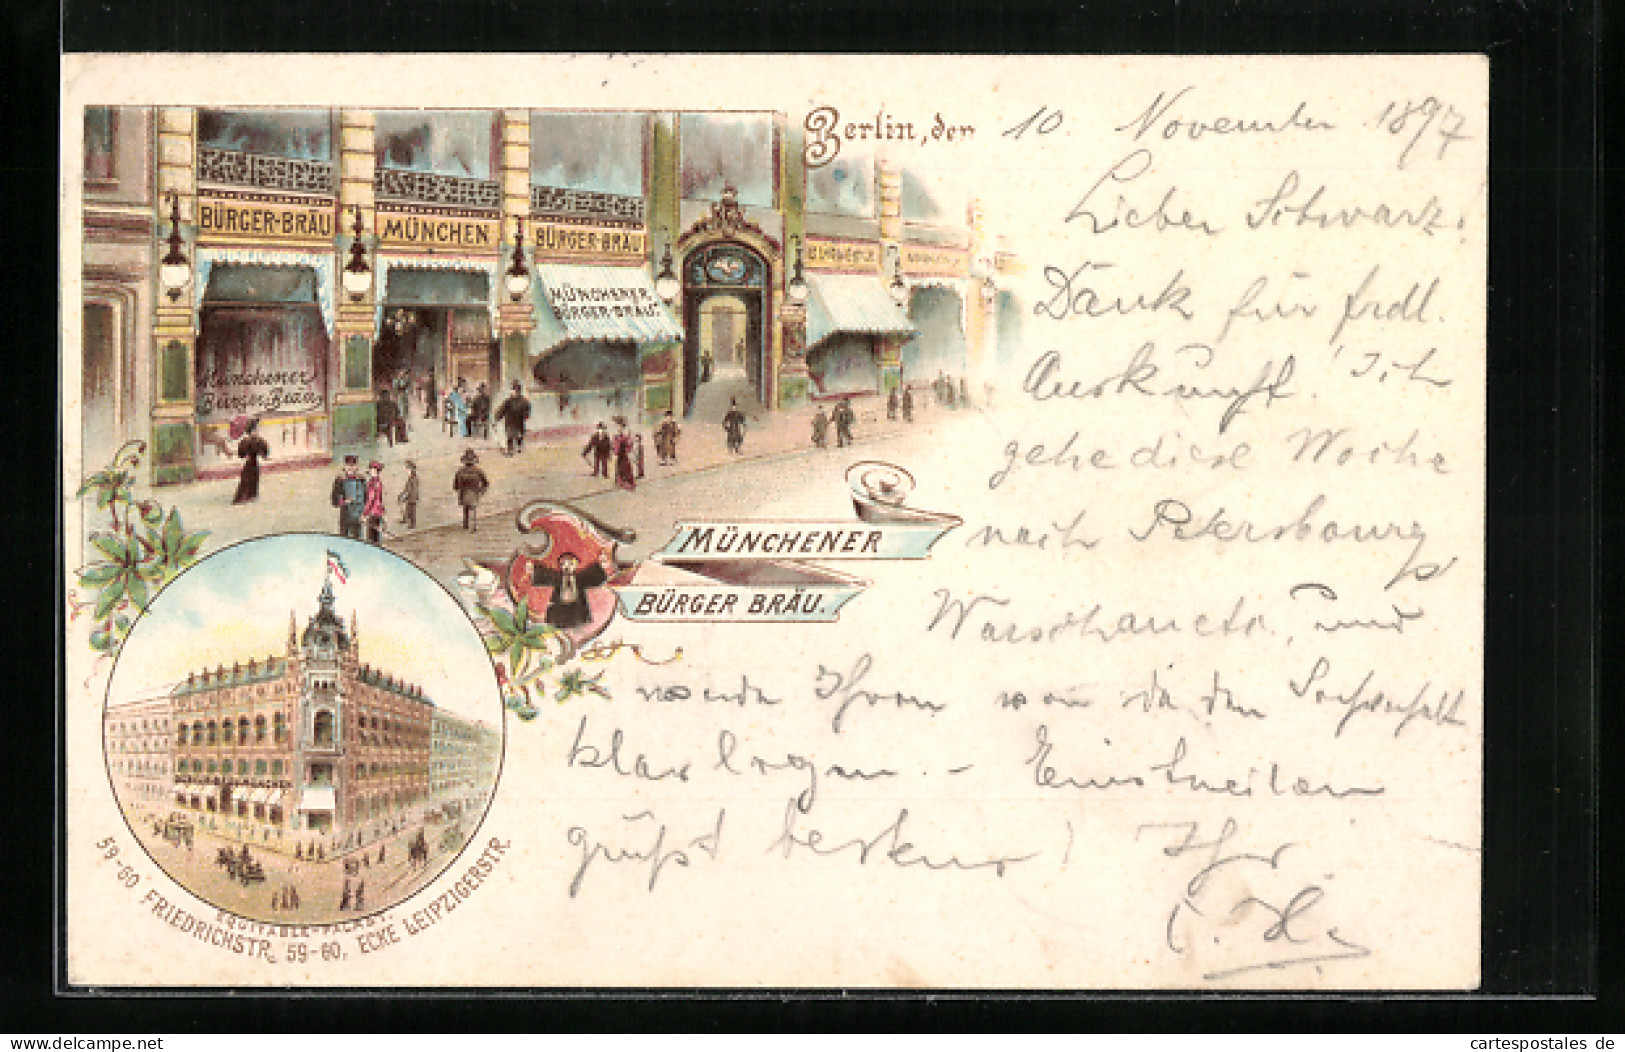 Berlin, den 10. November 1897
Lieber Schwarz!
Dank für frdl.
Auskunft. Ich
gehe diese Woche
nach Petersbourg
Warschau etc., und
werde Ihnen von da den
klar legen. – Einstweilen
grüßt bestens! Ihr
C. H.
BÜRGER-BRÄU
MÜNCHEN
BÜRGER-BRÄU
MÜNCHENER
BÜRGER-BRÄU.
Münchener
Bürger Bräu
MÜNCHENER
BÜRGER BRÄU.
EQUITABLE-PALAST.
59-60 FRIEDRICHSTR. 59-60, ECKE LEIPZIGERSTR.
Delcampe.net
cartespostales de